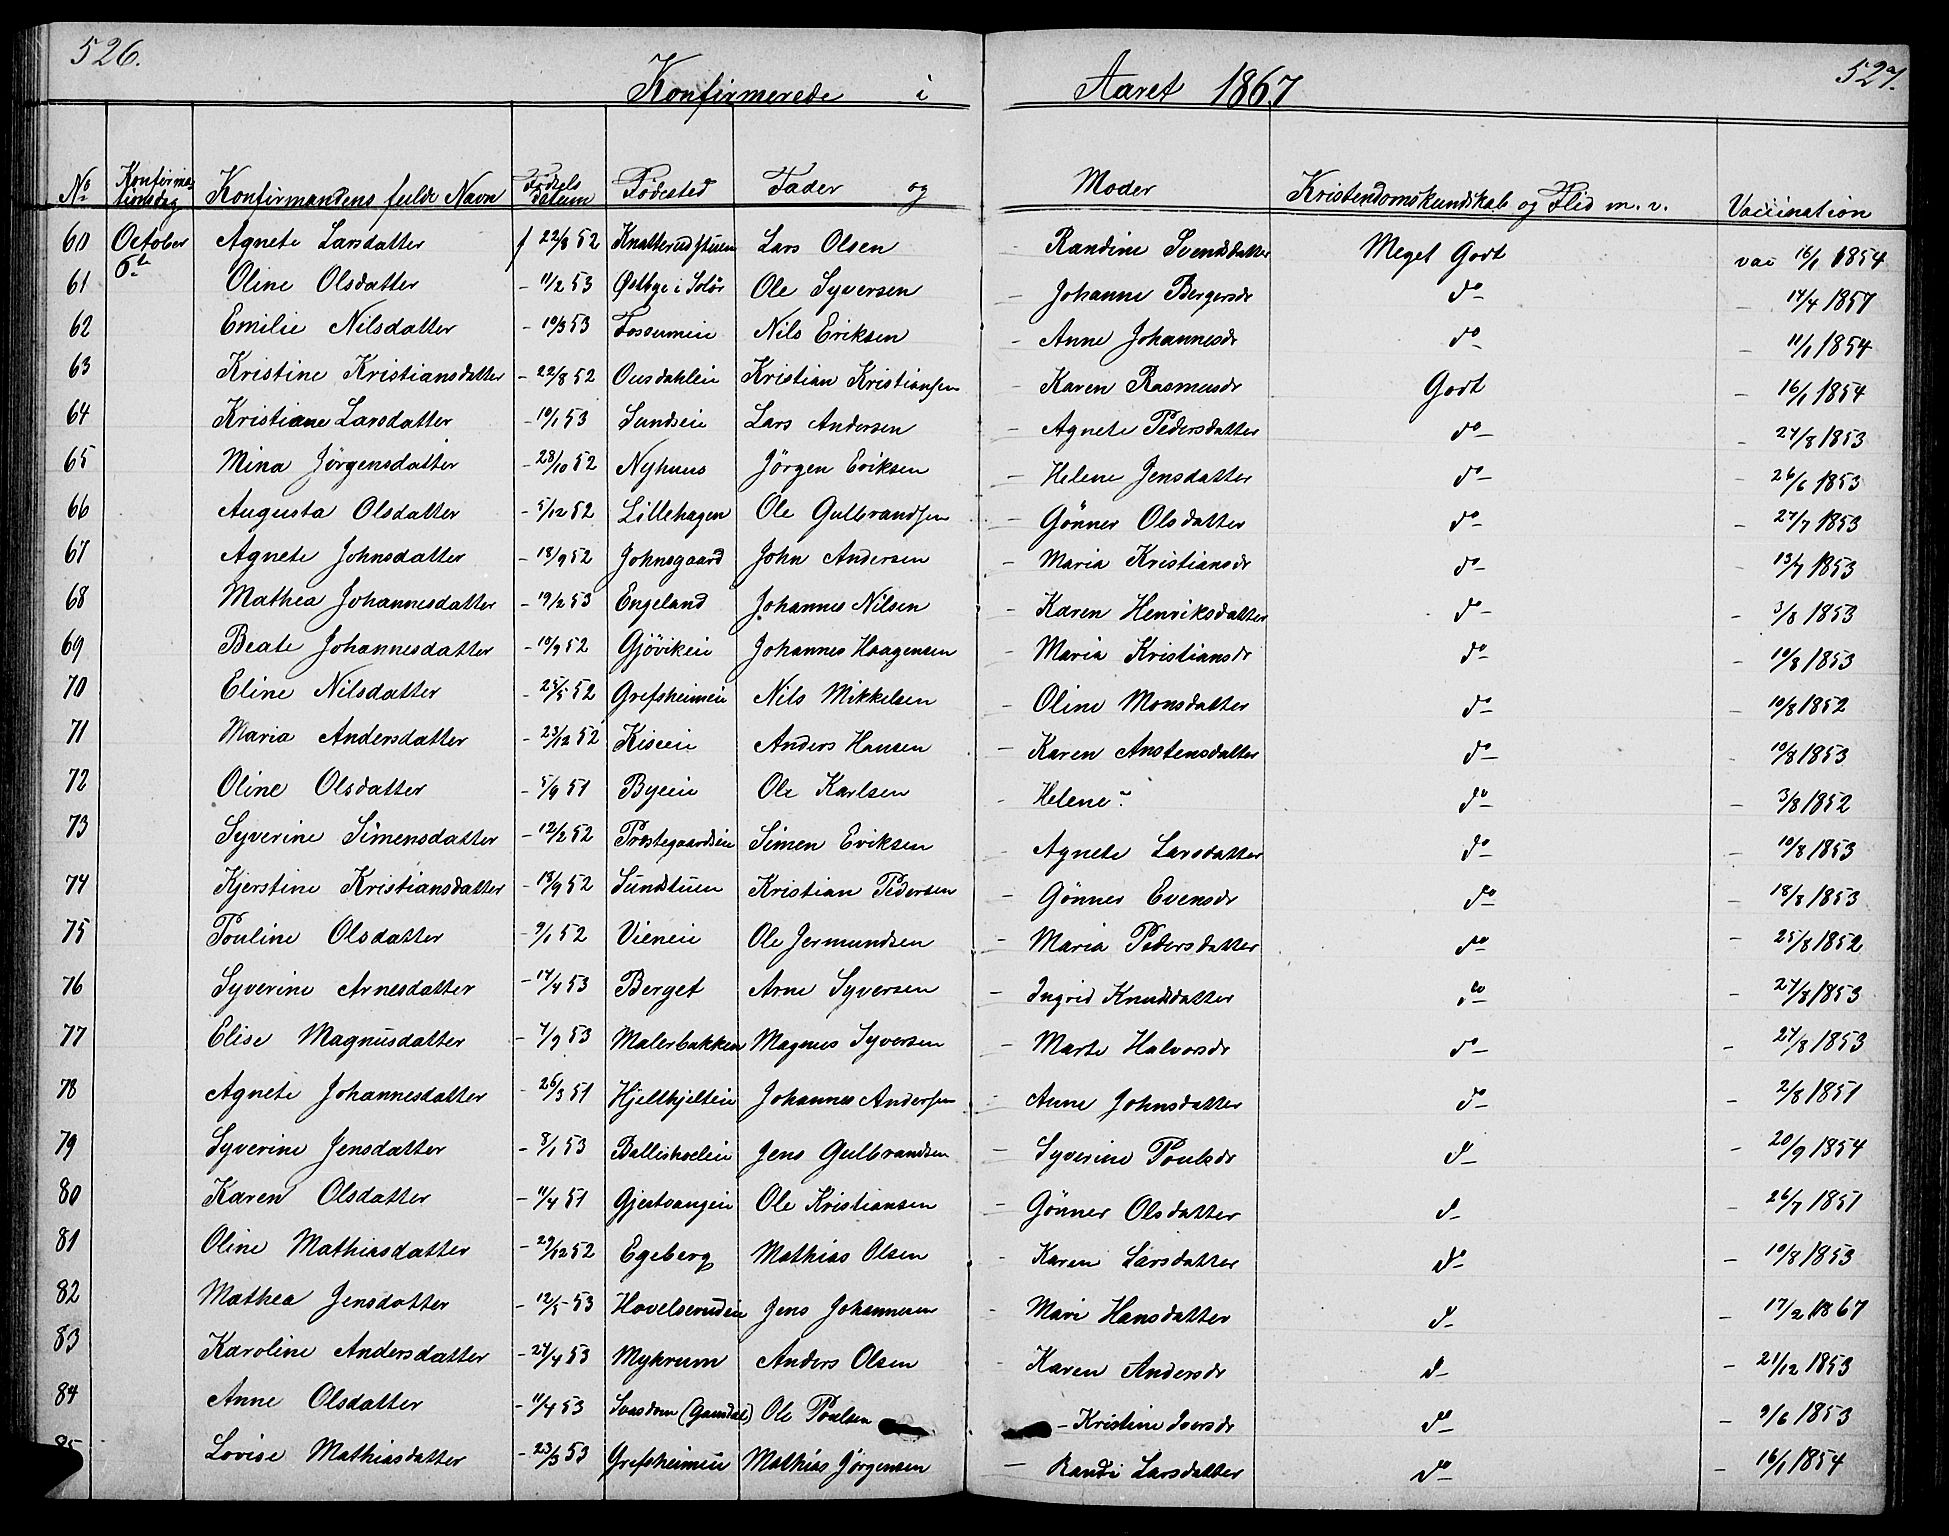 526.
Konfirmerede i Aaret 1867
527.
No Konfirmationsdag Konfirmandens fulde Navn Fødselsdatum Fødested Fader og Moder Kristendomskundskab og Flid m. v. Vaccination
60 October 6te Agnete Larsdatter f 22/8 52 Knatterudstuen Lars Olsen – Randine Svendsdatter Meget Godt vac 16/1 1854
61 Oline Olsdatter – 11/2 53 Østbye i Solør Ole Syversen – Johanne Bergersdr do – 14/4 1857
62 Emilie Nilsdatter – 10/3 53 Fossumeie Nils Eriksen – Anne Johannesdr do – 11/1 1854
63 Kristine Kristiansdatter – 22/8 52 Ousdahleie Kristian Kristiansen – Karen Rasmusdr Godt – 16/1 1854
64 Kristiane Larsdatter – 10/1 53 Sundseie Lars Andersen – Agnete Pedersdatter do – 24/8 1853
65 Mina Jørgensdatter – 28/10 52 Nyhuus Jørgen Eriksen – Helene Jensdatter do – 26/6 1853
66 Augusta Olsdatter – 5/12 52 Lillehagen Ole Gulbrandsen – Gønner Olsdatter do – 27/7 1853
67 Agnete Johnsdatter – 18/9 52 Johnsgaard John Andersen – Maria Kristiansdr do – 13/7 1853
68 Mathea Johannesdatter – 19/2 53 Engeland Johannes Nilsen – Karen Henriksdatter do – 3/8 1853
69 Beate Johannesdatter – 10/9 52 Gjøvikeie Johannes Haagensen – Maria Kristiansdr do – 10/8 1853
70 Eline Nilsdatter – 25/5 52 Grefsheimeie Nils Mikkelsen – Oline Monsdatter do – 10/8 1852
71 Maria Andersdatter – 23/12 52 Kiseeie Anders Hansen – Karen Anstensdatter do – 10/8 1853
72 Oline Olsdatter – 5/9 51 Byeeie Ole Karlsen – Helene ? do – 3/8 1852
73 Syverine Simensdatter – 12/2 52 Præstegaardseie Simen Eriksen – Agnete Larsdatter do – 10/8 1853
74 Kjerstine Kristiansdatter – 18/9 52 Sundstuen Kristian Pedersen – Gønner Evensdr do – 18/8 1853
75 Pouline Olsdatter – 9/1 52 Vieneie Ole Jermundsen – Maria Pedersdatter do – 25/8 1852
76 Syverine Arnesdatter – 14/4 53 Berget Arne Syversen – Ingrid Knudsdatter do – 27/8 1853
77 Elise Magnusdatter – 7/9 53 Malerbakken Magnus Syversen – Marte Halvorsdr do – 27/8 1853
78 Agnete Johannesdatter – 26/3 51 Hjelthjelteie Johannes Andersen – Anne Johnsdatter do – 2/8 1851
79 Syverine Jensdatter – 8/1 53 Ballishoeleie Jens Gulbrandsen – Syverine Poulsdr d – 20/9 1854
80 Karen Olsdatter – 11/4 51 Gjestvangeie Ole Kristiansen – Gønner Olsdatter d – 26/7 1851
81 Oline Mathiasdatter – 29/12 52 Egeberg Mathias Olsen – Karen Larsdatter do – 10/8 1853
82 Mathea Jensdatter – 12/5 53 Hovelserudeie Jens Johannesen – Mari Hansdatter d – 17/2 1867
83 Karoline Andersdatter – 27/4 53 Myhrum Anders Olsen – Karen Andersdr d – 21/12 1853
84 Anne Olsdatter – 11/4 53 Svasdom (Gausdal) Ole Poulsen – Kristine Iversdr do – 9/6 1853
85 Lovise Mathiasdatter – 23/3 53 Grefsheimeie Mathias Jørgensen – Randi Larsdatter do – 16/1 1854